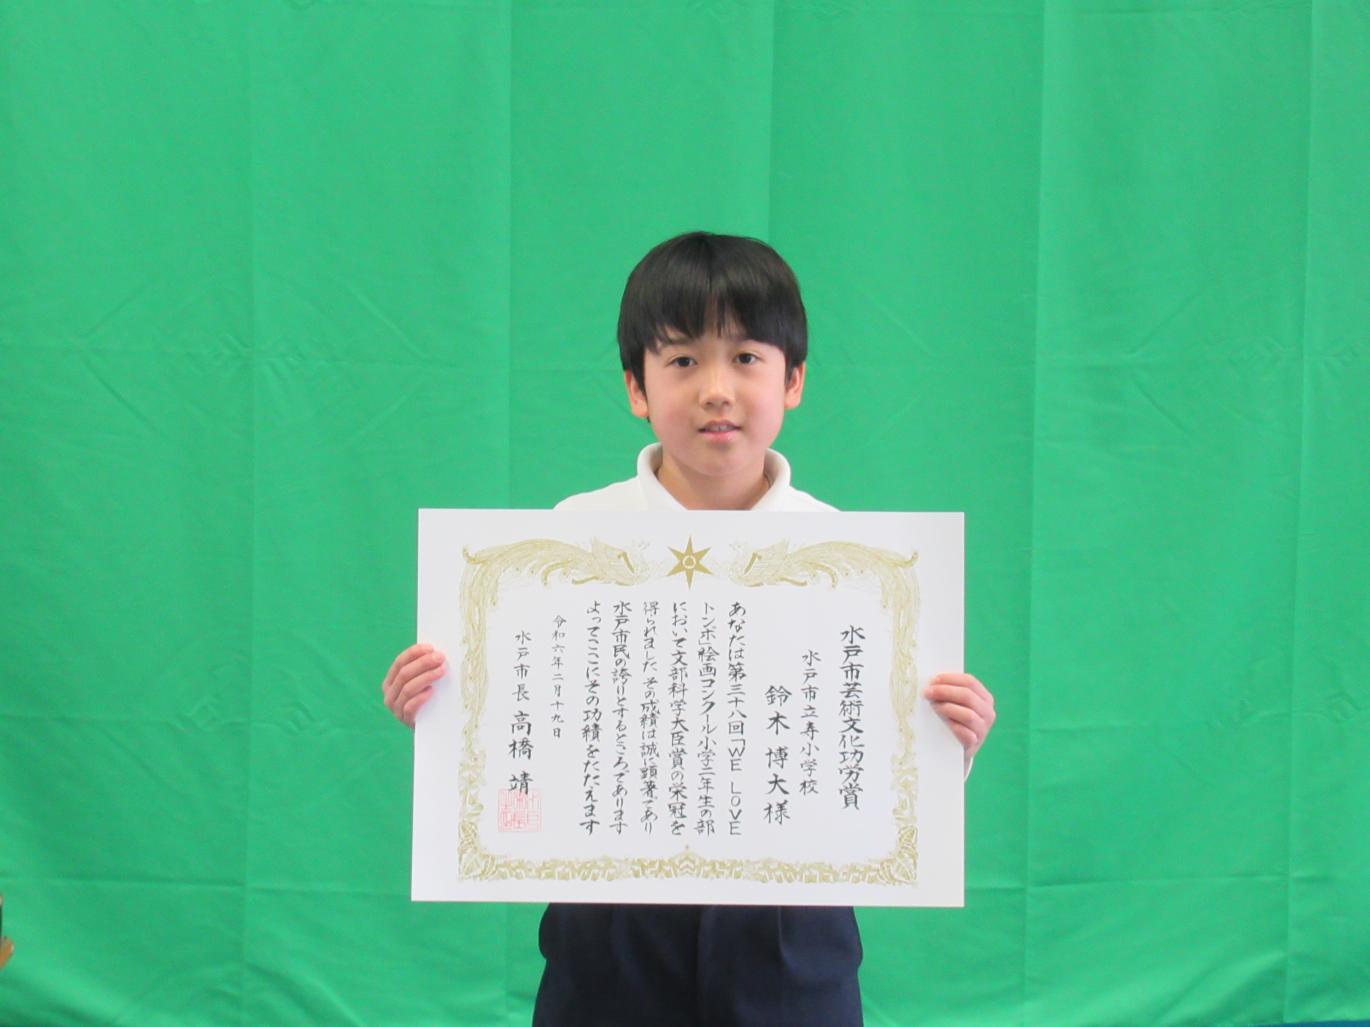 水戸市芸術文化功労賞
水戸市立寿小学校
鈴木博大様
あなたは第三十八回「WE LOVE
トンボ」絵画コンクール小学二年生の部
において文部科学大臣賞の栄冠を
得られました その成績は誠に顕著であり
水戸市民の誇りとするところであります
よってここにその功績をたたえます
令和六年二月十九日
水戸市長 高橋 靖